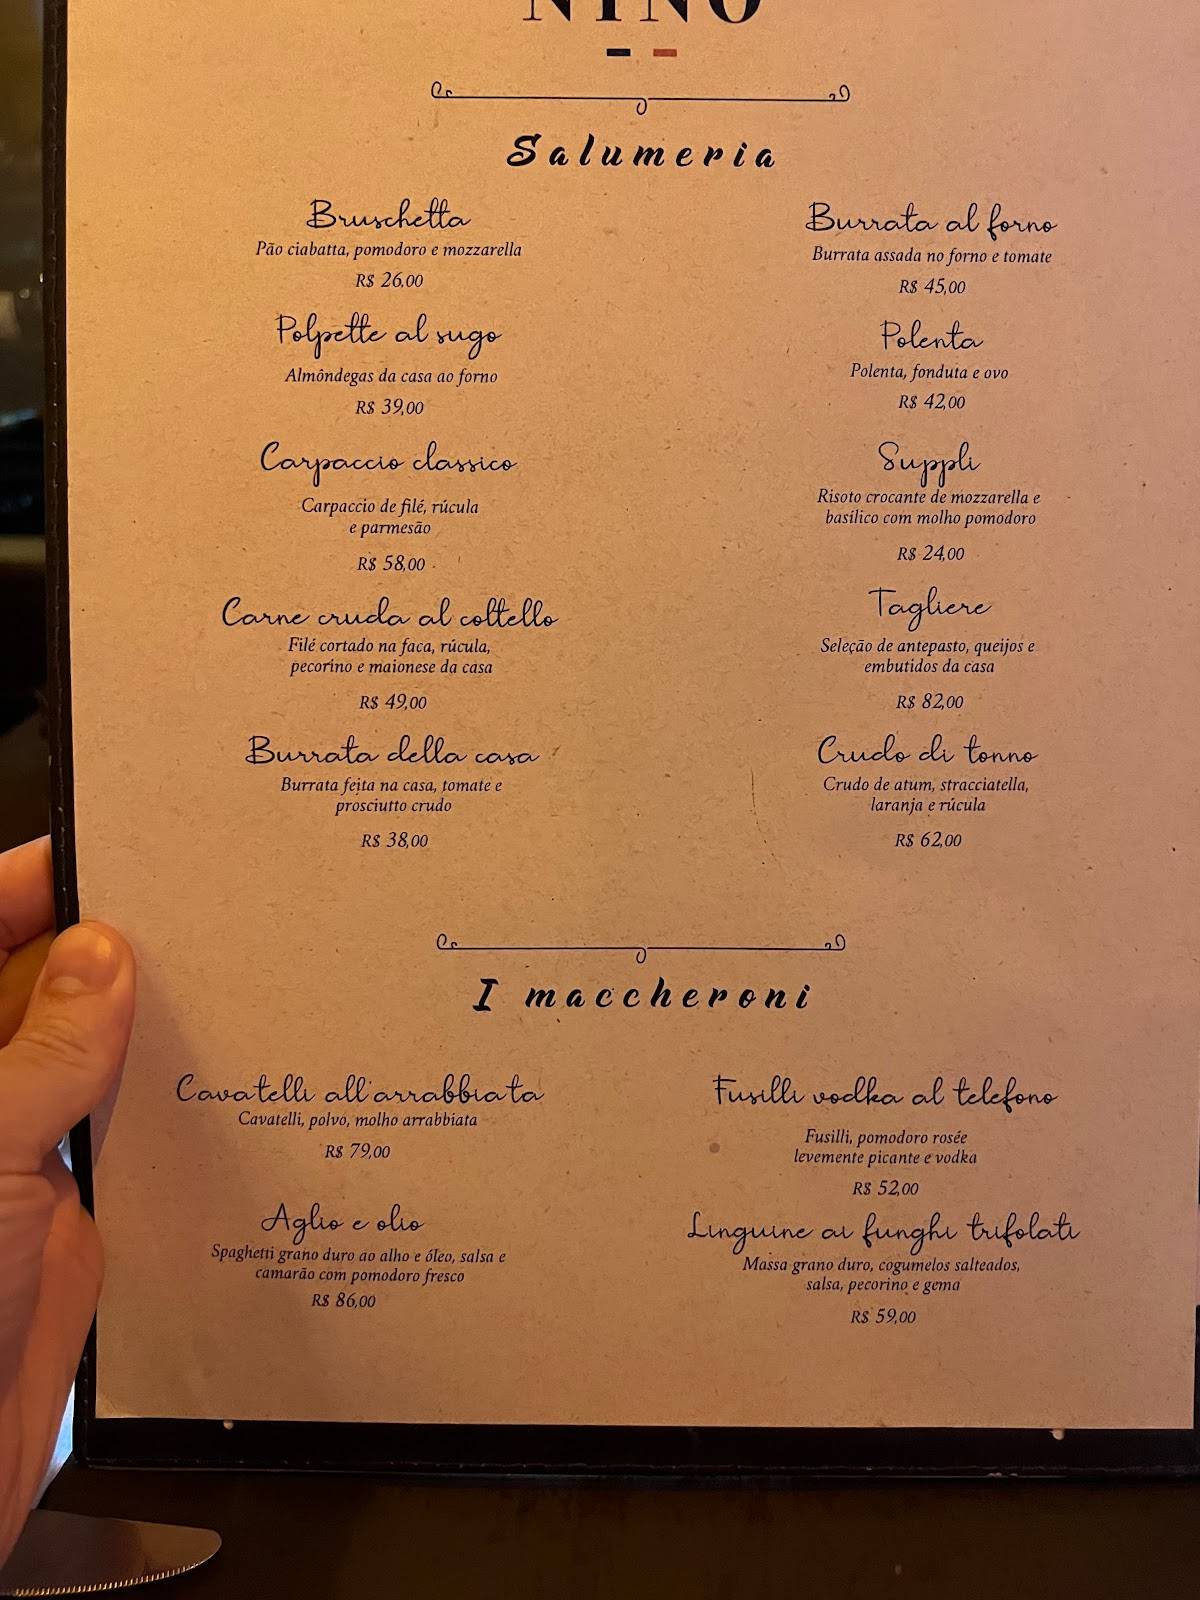 NINO
Salumeria
Bruschetta
Pão ciabatta, pomodoro e mozzarella
R$ 26,00
Polpette al sugo
Almôndegas da casa ao forno
R$ 39,00
Carpaccio classico
Carpaccio de filé, rúcula
e parmesão
R$ 58,00
Carne cruda al coltello
Filé cortado na faca, rúcula,
pecorino e maionese da casa
R$ 49,00
Burrata della casa
Burrata feita na casa, tomate e
prosciutto crudo
R$ 38,00
Burrata al forno
Burrata assada no forno e tomate
R$ 45,00
Polenta
Polenta, fonduta e ovo
R$ 42,00
Suppli
Risoto crocante de mozzarella e
basílico com molho pomodoro
R$ 24,00
Tagliere
Seleção de antepasto, queijos e
embutidos da casa
R$ 82,00
Crudo di tonno
Crudo de atum, stracciatella,
laranja e rúcula
R$ 62,00
I maccheroni
Cavatelli all'arrabbiata
Cavatelli, polvo, molho arrabbiata
R$ 79,00
Aglio e olio
Spaghetti grano duro ao alho e óleo, salsa e
camarão com pomodoro fresco
R$ 86,00
Fusilli vodka al telefono
Fusilli, pomodoro rosée
levemente picante e vodka
R$ 52,00
Linguine ai funghi trifolati
Massa grano duro, cogumelos salteados,
salsa, pecorino e gema
R$ 59,00